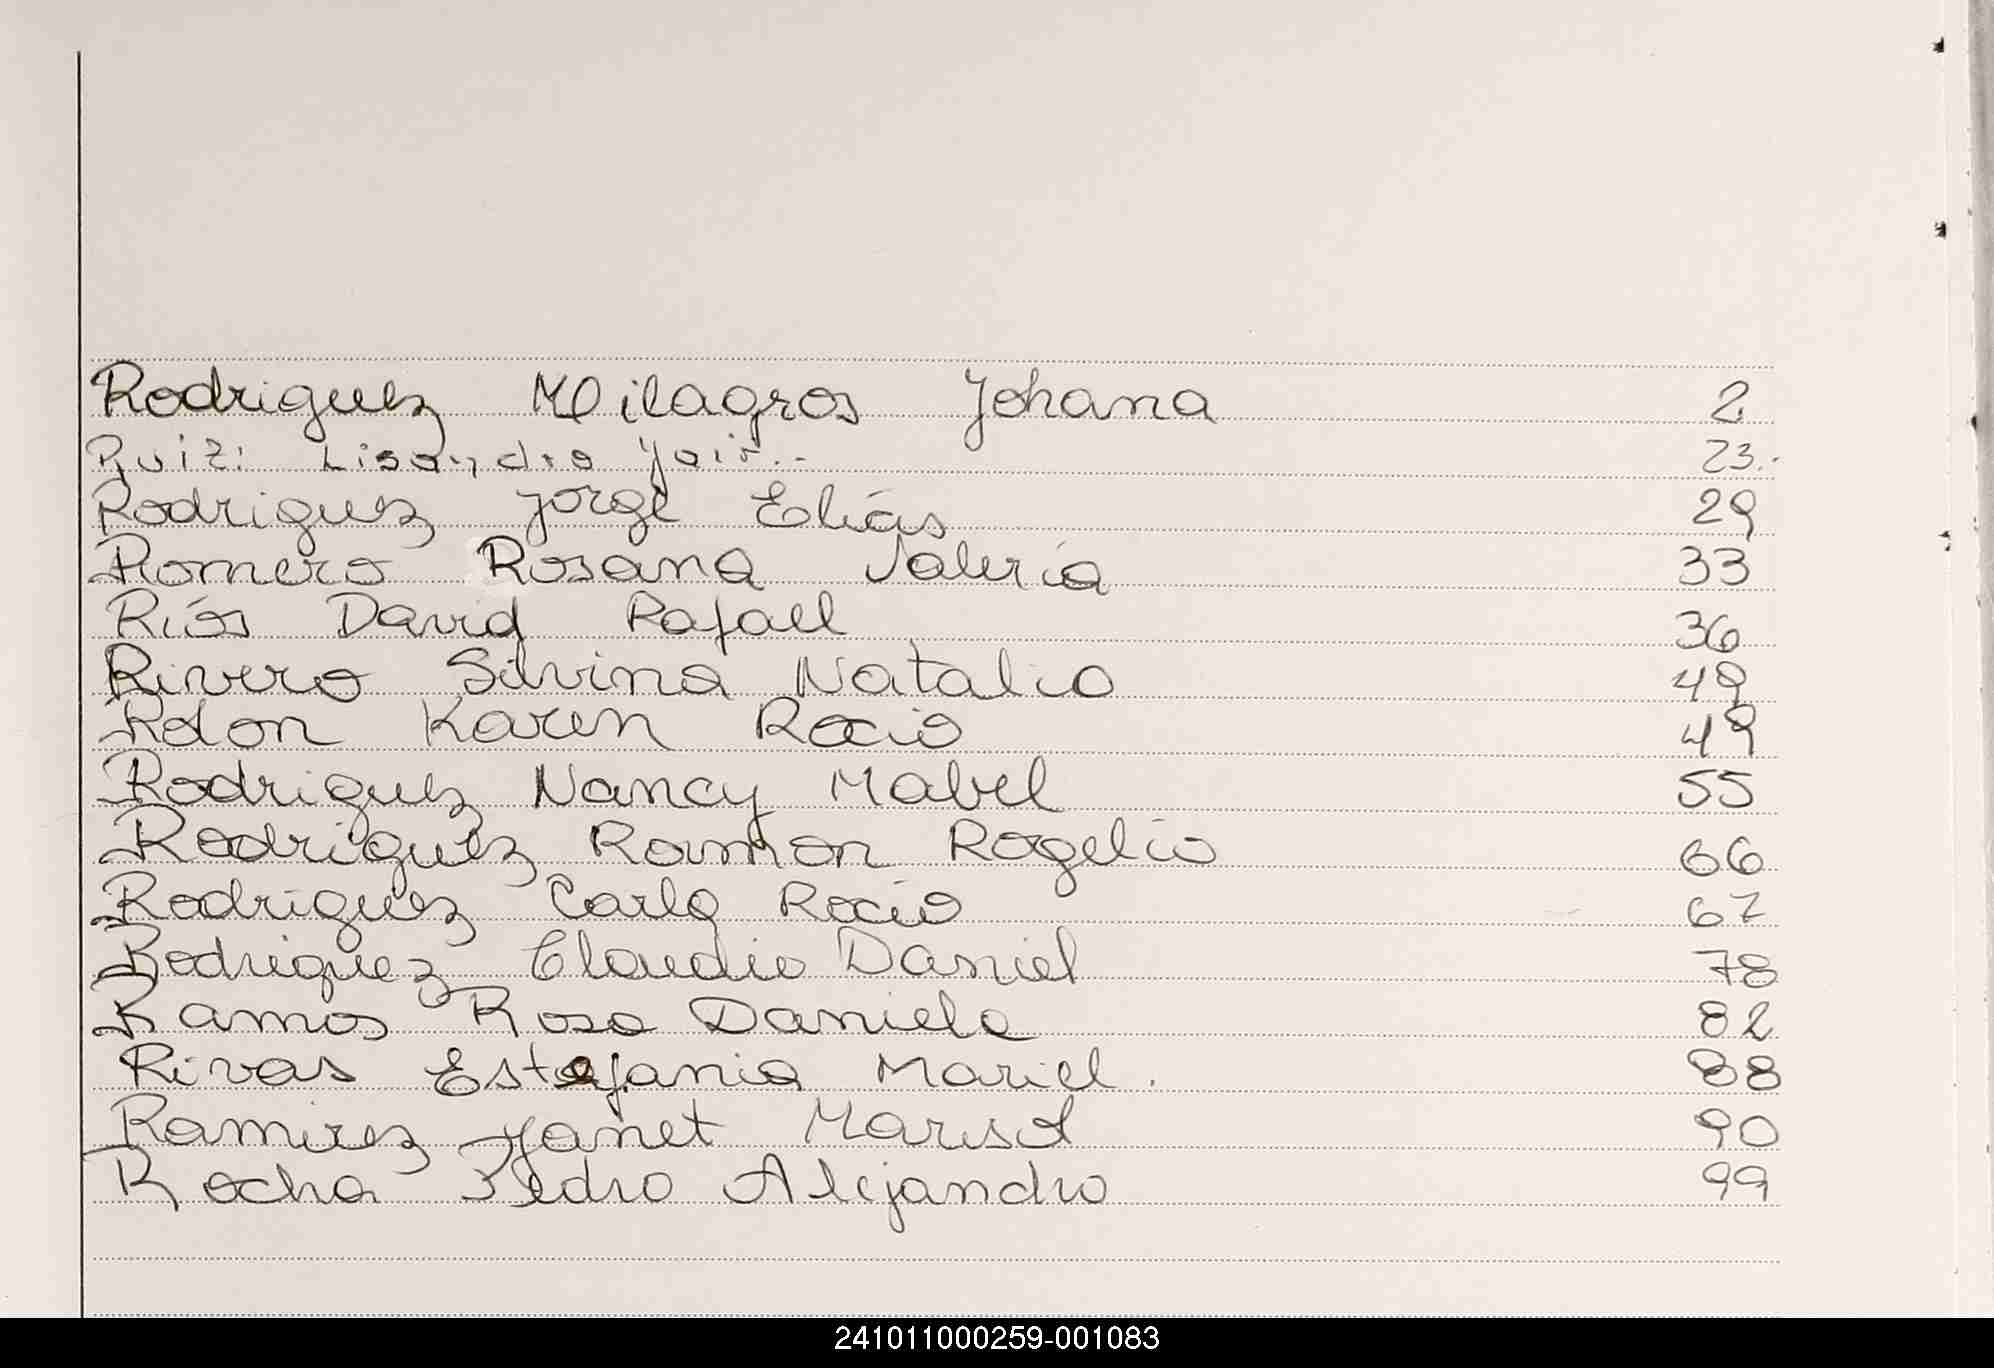 Rodriguez Milagros Johana 2
Ruiz: Lisandro Yair.- 23.-
Rodriguez Jorge Elías 29
Romero Rosana Valeria 33
Ríos David Rafael 36
Rivero Silvina Natalia 49
Rolon Karen Rocio 49
Rodriguez Nancy Mabel 55
Rodriguez Ramon Rogelio 66
Rodriguez Carla Rocio 67
Rodriguez Claudio Daniel 78
Ramos Rosa Daniela 82
Rivas Estefania Mariel. 88
Ramirez Yanet Marisol 90
Rocha Pedro Alejandro 99
241011000259-001083